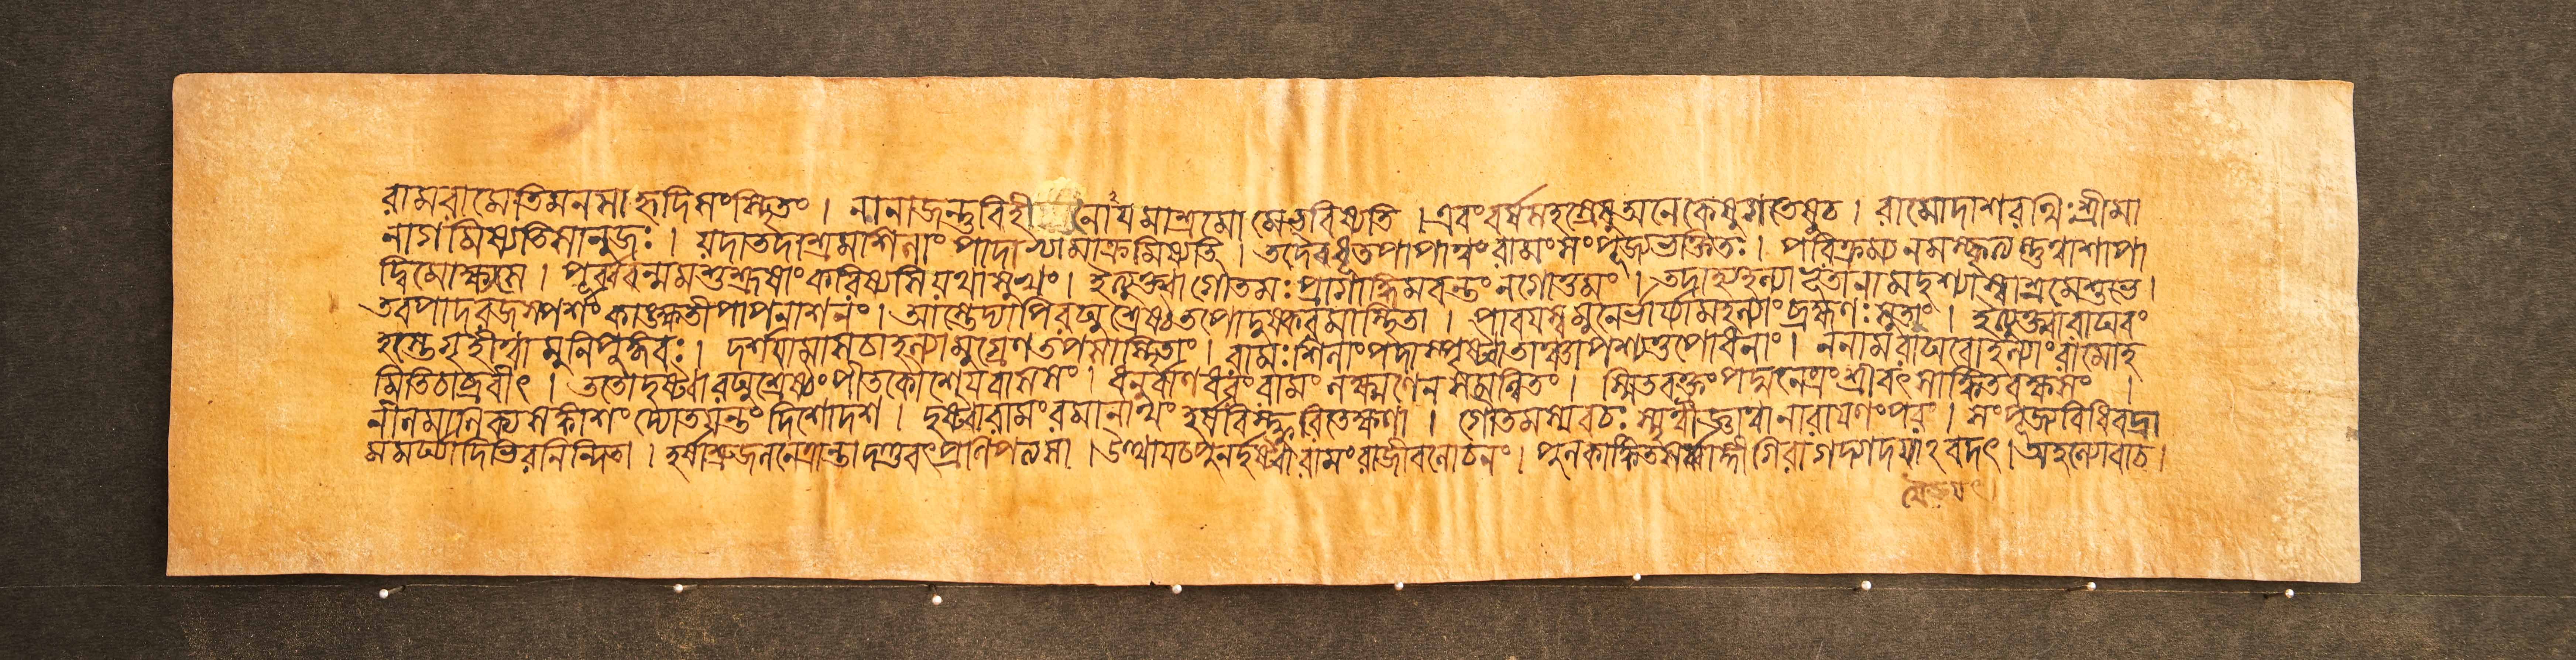 রামরামেতিমনসাহৃদিসংস্থিতং । নানাজন্তুবিহীনোঽয়মাশ্রমোমেভবিষ্যতি । এবংবর্ষসহস্রেষুঅনেকেষুগতেষুচ । রামোদাশরথিঃশ্রীমা
নাগমিষ্যতিসানুজঃ । য়দাতদাশ্রমাশিলাং পাদাভ্যামাক্রমিষ্যতি । তদৈবধূতপাপাত্বংরামংসংপূজ্যভক্তিতঃ । পরিক্রম্যনমস্কৃত্যস্তুত্বাশাপা
দ্বিমোক্ষ্যসে । পূর্ব্ববন্মমশুশ্রূষাংকরিষ্যসিয়থাসুখং । ইত্যুক্ত্বাগৌতমঃপ্রাগাদ্ধিমবন্তংনগোত্তমং । তদাদ্যহল্যাভূতানামদৃশ্যাস্বাশ্রমেশুভে ।
তবপাদরজস্পর্শংকাঙ্ক্ষতীপাপনাশনং । আস্তেদ্যাপিরঘুশ্রেষ্ঠতপোদুষ্করমাস্থিতা । পাবয়স্বমুনের্ভার্য্যামহল্যাংব্রহ্মণঃসুতাং । ইত্যুক্ত্বারাঘবং
হস্তেগৃহীত্বামুনিপুঙ্গবঃ । দর্শয়ামাসচাহল্যামুগ্রেণতপসাস্থিতাং । রামঃশিলাংপদাস্পৃষ্ট্বাতাঞ্চাপশ্যত্তপোধনাং । ননামরাঘবোহল্যাংরামোহ
মিতিচাব্রবীৎ । ততোদৃষ্ট্বারঘুশ্রেষ্ঠংপীতকৌশেয়বাসসং । ধনুর্বাণধরংরামংলক্ষ্মণেনসমন্বিতং । স্মিতবক্ত্রংপদ্মনেত্রংশ্রীবৎসাঙ্কিতবক্ষসং ।
নীলমাণিক্যসঙ্কাশংদ্যোতয়ন্তংদিশোদশ । দৃষ্ট্বারামংরমানাথংহর্ষবিস্ফুরিতেক্ষণা । গৌতমস্যবচঃস্মৃত্বাজ্ঞাত্বানারায়ণংপরং । সংপূজ্যবিধিবদ্রা
মমর্ঘ্যাদিভিরনিন্দিতা । হর্ষাশ্রুজলনেত্রান্তাদণ্ডবৎপ্রণিপত্যসা । উত্থায়চপুনর্দৃষ্ট্বারামংরাজীবলোচনং । পুলকাঙ্কিতসর্ব্বাঙ্গীগিরাগদ্গদয়াঽবদৎ । অহল্যোবাচ ।